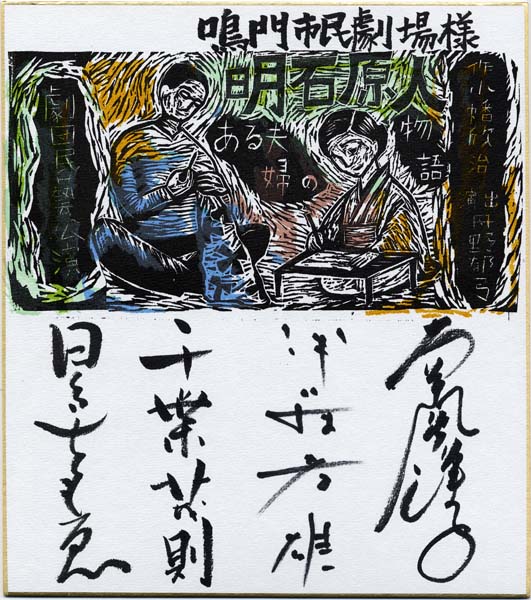 鳴門市民劇場様
明石原人
ある夫婦の物語
作 小幡欣治
演出 丹野郁弓
劇団民藝公演
南風洋子
千葉茂則
日色ともゑ